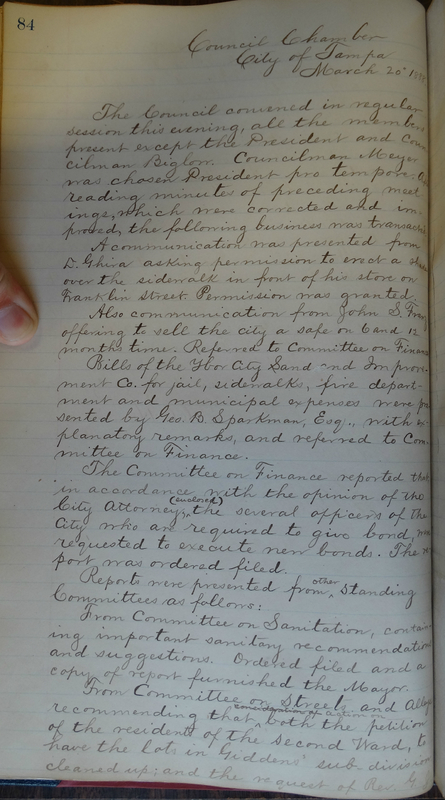 84
Council Chamber
City of Tampa
March 20" 188
The Council convened in regular
session this evening, all the members
present except the President and Coun
cilman Biglow. Councilman Meyer
was chosen President pro tempore.
reading minutes of preceding meet
ings, which were corrected and im
proved, the following business was transacted
A communication was presented from
L. Ghira asking permission to erect a
over the sidewalk in front of his store on
Franklin Street. Permission was granted.
Also communication from John S.
offering to sell the city a safe on 6 and 12
months time. Referred to Committee on Finance
Bills of the Ybor City Land and Improve-
ment Co. for jail, sidewalks, fire depart-
ment and municipal expenses were pre
sented by Geo. B. Sparkman, Esq., with ex
planatory remarks, and referred to Com-
mittee on Finance.
The Committee on Finance reported that
in accordance with the opinion of the
City Attorney, (enclosed) the several officers of the
City who are required to give bond,
requested to execute new bonds. The re
port was ordered filed.
Reports were presented from other Standing
Committees as follows:
From Committee on Sanitation, contain
ing important sanitary recommendations
and suggestions. Ordered filed and a
copy of report furnished the Mayor.
From Committee on Streets and Alleys
recommending that both the petition
of the residents of the Second Ward, to
have the lots in Giddens' sub division
cleaned up; and the request of Rev.